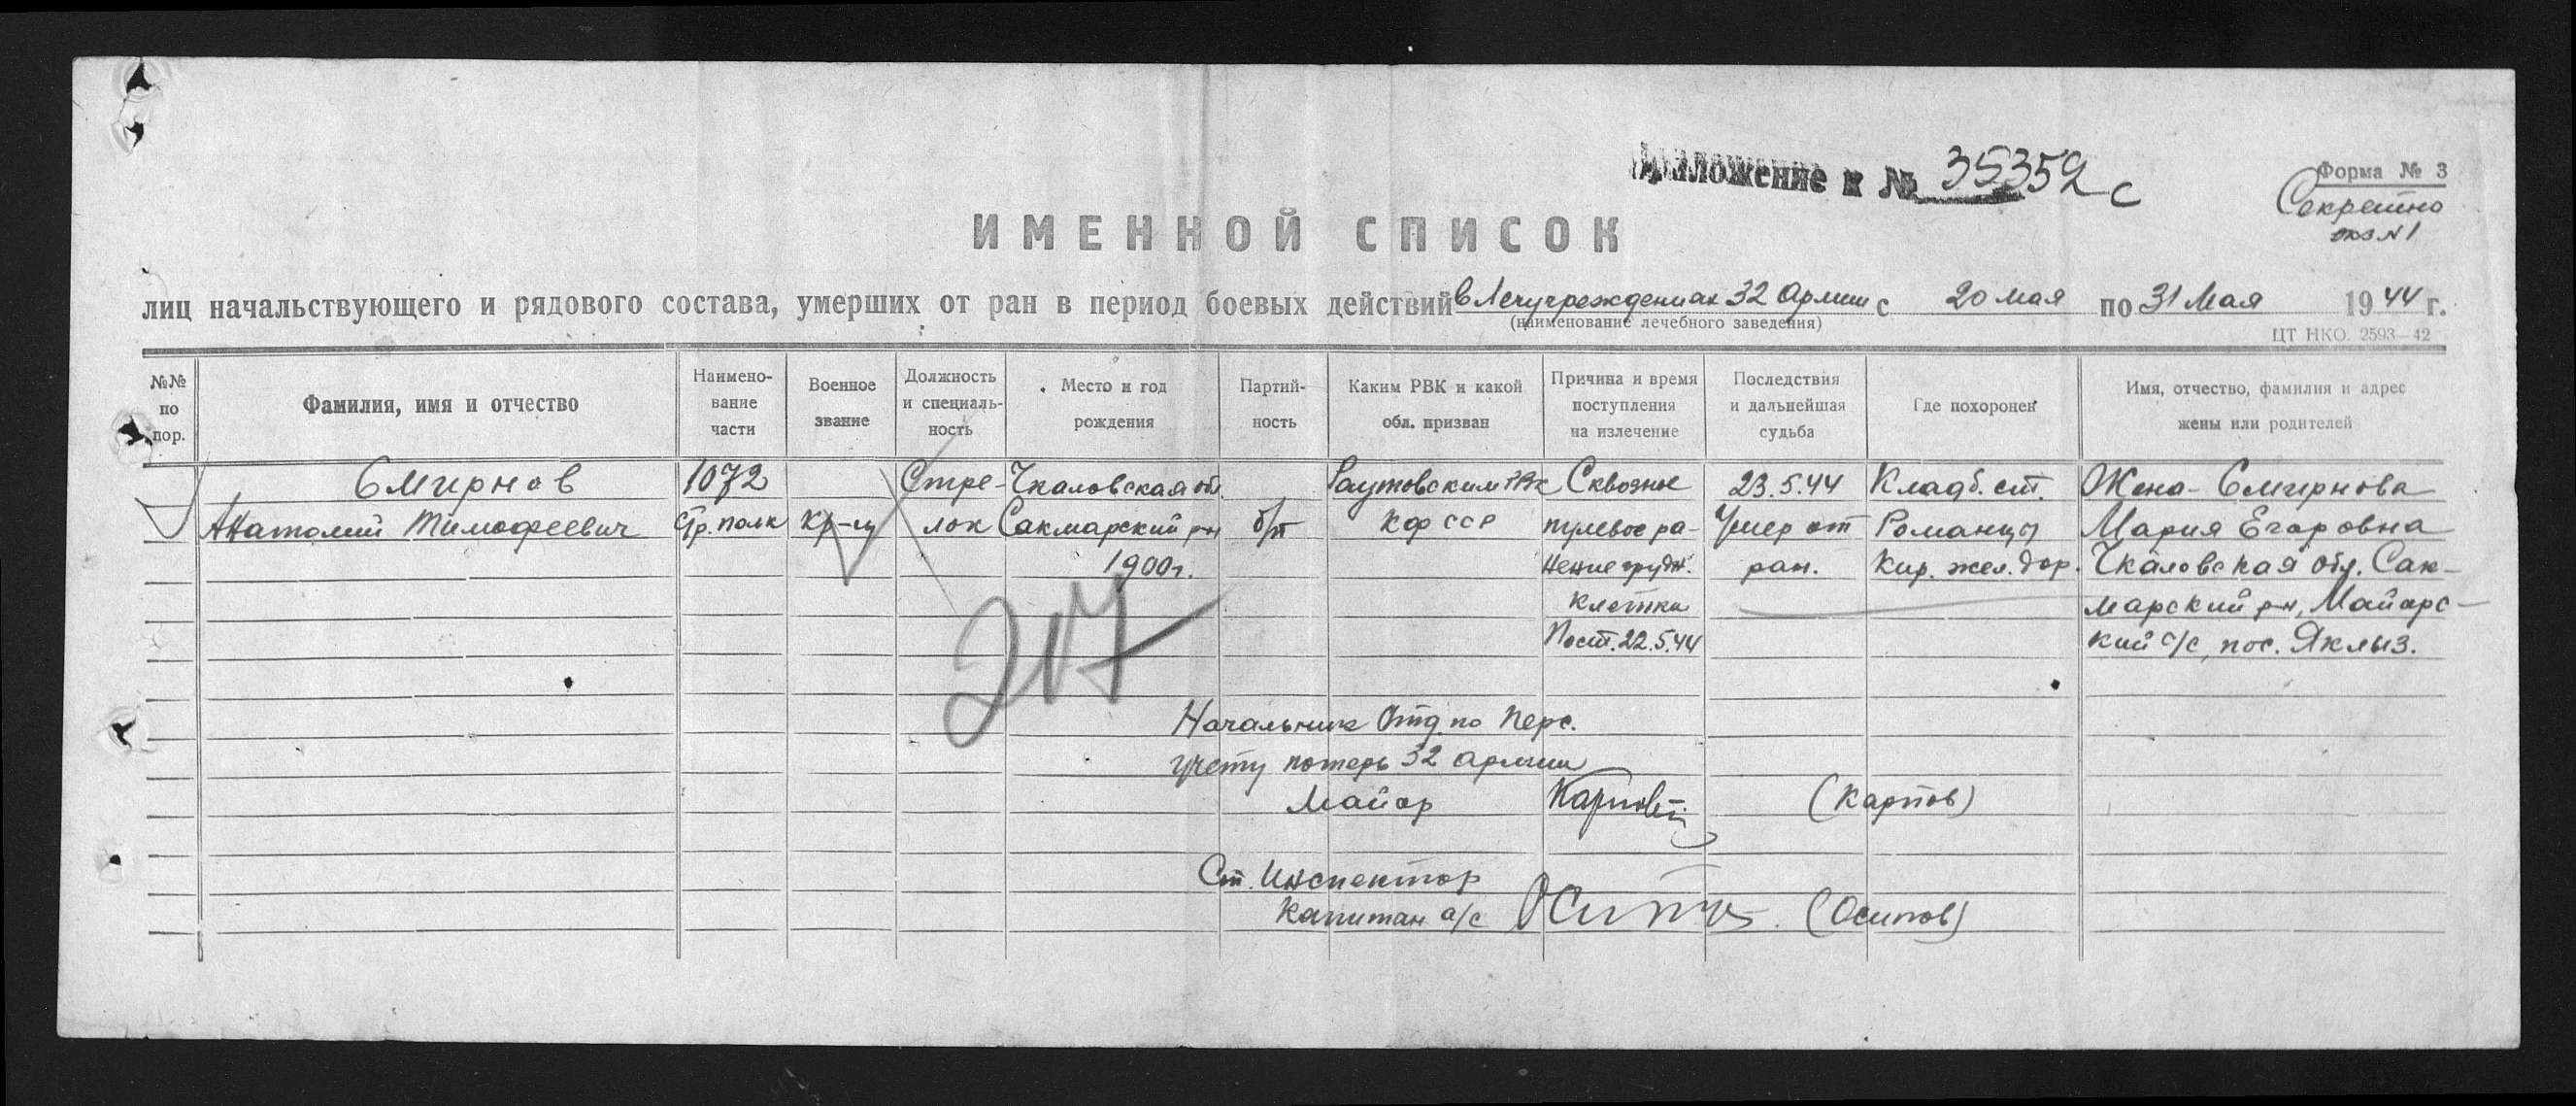 Приложение к № 35352 с
Форма № 3
Секретно
экз N 1
ИМЕННОЙ СПИСОК
лиц начальствующего и рядового состава, умерших от ран в период боевых действий в Лечучреждениях 32 Армии с 20 мая по 31 Мая 1944 г.
(наименование лечебного заведения)
ЦТ НКО. 2593—42
№№ по пор.
Фамилия, имя и отчество
Наимено-
вание
части
Военное
звание
Должность
и специаль-
ность
Место и год
рождения
Партий-
ность
Каким РВК и какой
обл. призван
Причина и время
поступления
на излечение
Последствия
и дальнейшая
судьба
Где похоронен
Имя, отчество, фамилия и адрес
жены или родителей
Смирнов
Анатолий Тимофеевич
1072
Стр. полк
Кр-ц
Стре-
лок
Чкаловская обл.
Сакмарский р-н
1900г.
б/п
Раутовским РВК
КФССР
Сквозное
пулевое ра-
нение грудн.
клетки
Пост. 22.5.44
23.5.44
Умер от
ран.
Кладб. ст.
Романцы
Кир. жел. дор.
Жена - Смирнова
Мария Егоровна
Чкаловская обл. Сак-
марский р-н, Майорс-
кий с/с, пос. Яклыз.
217
Начальник Отд. по Перс.
учету потерь 32 армии
Майор Карпов (Карпов)
Ст. Инспектор
Капитан а/с Осипов (Осипов)